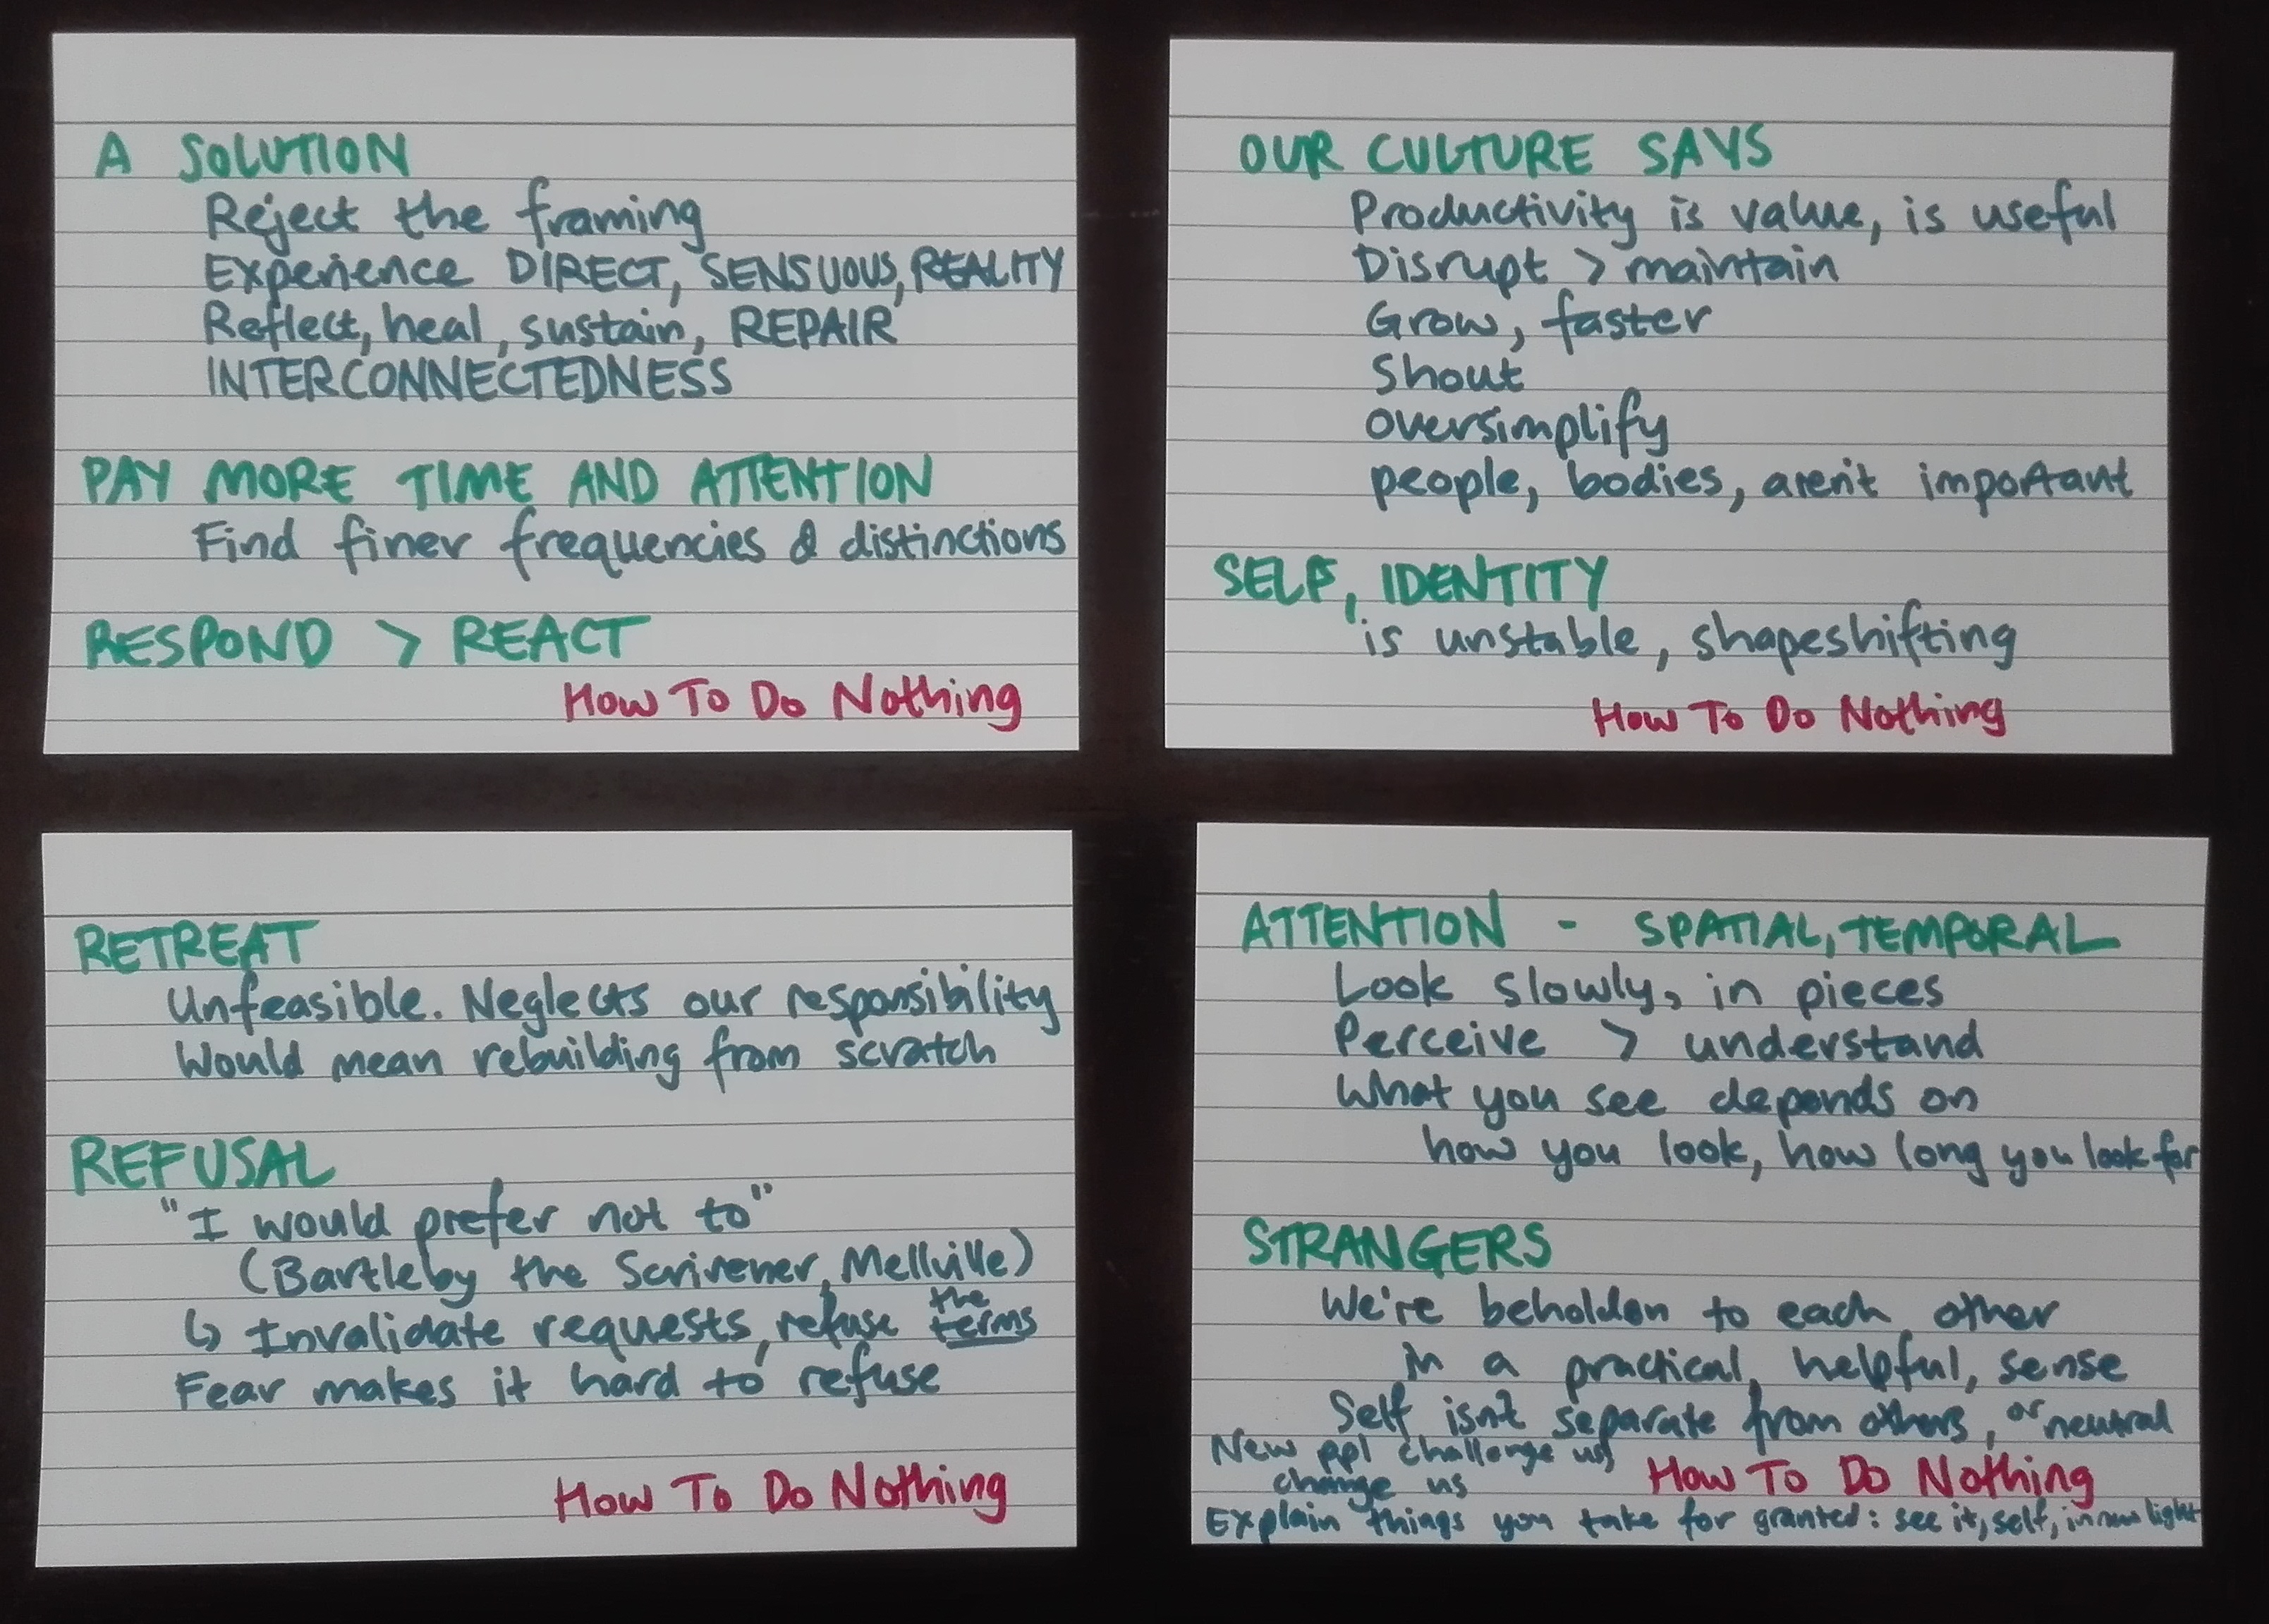 A SOLUTION
Reject the framing
Experience DIRECT, SENSUOUS, REALITY
Reflect, heal, sustain, REPAIR
INTERCONNECTEDNESS
PAY MORE TIME AND ATTENTION
Find finer frequencies & distinctions
RESPOND > REACT
How To Do Nothing
OUR CULTURE SAYS
Productivity is value, is useful
Disrupt > maintain
Grow, faster
Shout
oversimplify
people, bodies, aren't important
SELF, IDENTITY
is unstable, shapeshifting
How To Do Nothing
RETREAT
Unfeasible. Neglects our responsibility
Would mean rebuilding from scratch
REFUSAL
"I would prefer not to"
(Bartleby the Scrivener, Mellville)
↳ Invalidate requests, refuse the terms
Fear makes it hard to refuse
How To Do Nothing
ATTENTION - SPATIAL, TEMPORAL
Look slowly, in pieces
Perceive > understand
What you see depends on
how you look, how long you look for
STRANGERS
We're beholden to each other
in a practical, helpful, sense
Self isn't separate from others, or neutral
New ppl challenge us,
change us
How To Do Nothing
Explain things you take for granted: see it, self, in new light